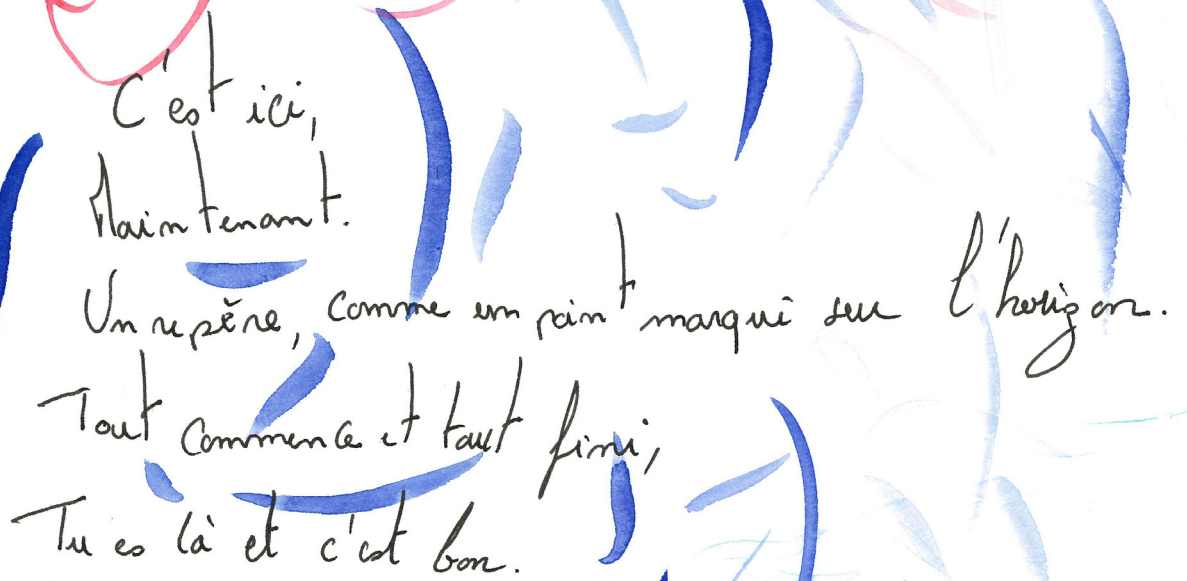 C'est ici,
Maintenant.
Un repère, comme un point marqué sur l'horizon.
Tout commence et tout fini,
Tu es là et c'est bon.